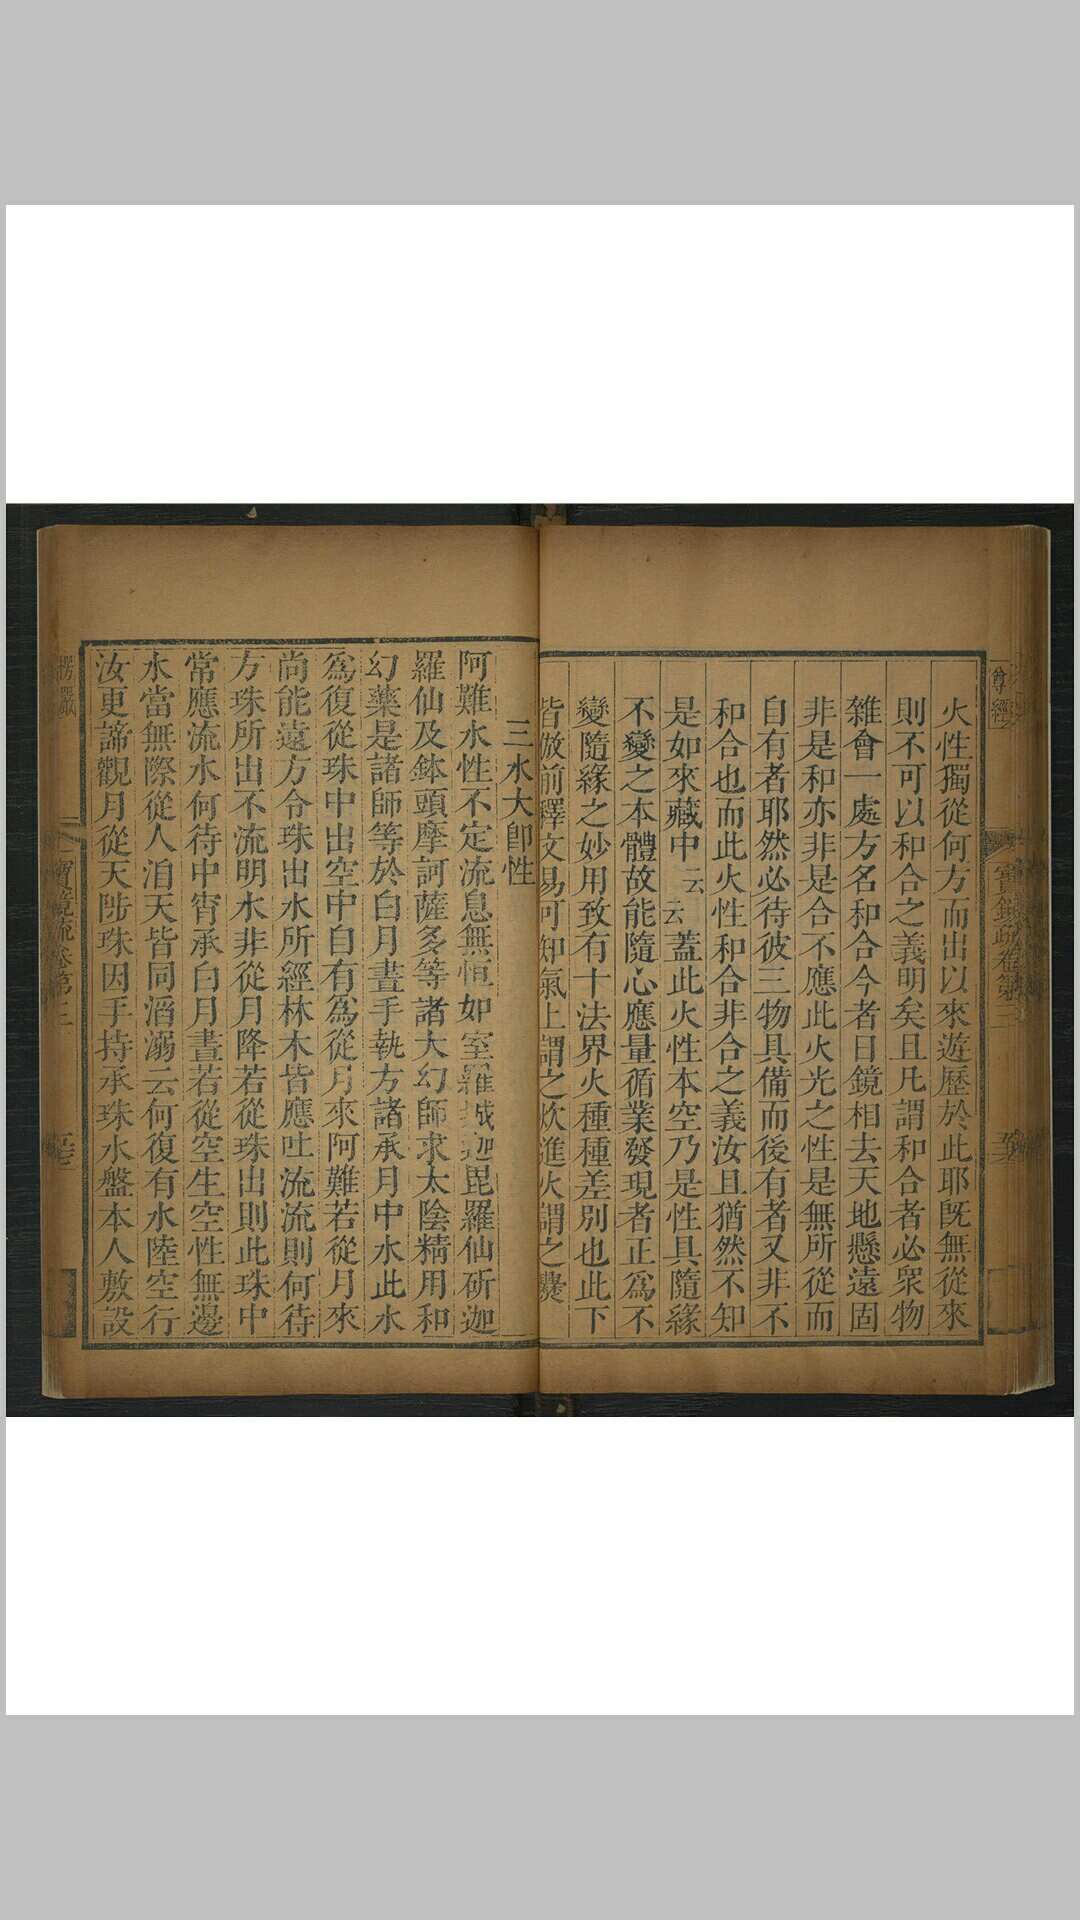 火性獨從何方而出以來遊歷於此耶既無從來
則不可以和合之義明矣且凡謂和合者必衆物
雜會一處方名和合今者日鏡相去天地懸遠固
非是和亦非是合不應此火光之性是無所從而
自有者耶然必待彼三物具備而後有者又非不
和合也而此火性和合非合之義汝且猶然不知
是如來藏中云云蓋此火性本空乃是性具隨緣
不變之本體故能隨心應量循業發現者正爲不
變隨緣之妙用致有十法界火種種差別也此下
皆倣前釋文易可知氣上謂之炊進火謂之爨
三水大卽性
阿難水性不定流息無恒如室羅城迦毘羅仙斫迦
羅仙及鉢頭摩訶薩多等諸大幻師求太陰精用和
幻藥是諸師等於白月晝手執方諸承月中水此水
爲復從珠中出空中自有爲從月來阿難若從月來
尚能遠方令珠出水所經林木皆應吐流流則何待
方珠所出不流明水非從月降若從珠出則此珠中
常應流水何待中宵承白月晝若從空生空性無邊
水當無際從人洎天皆同滔溺云何復有水陸空行
汝更諦觀月從天陟珠因手持承珠水盤本人敷設
楞嚴 寶鏡疏卷第三